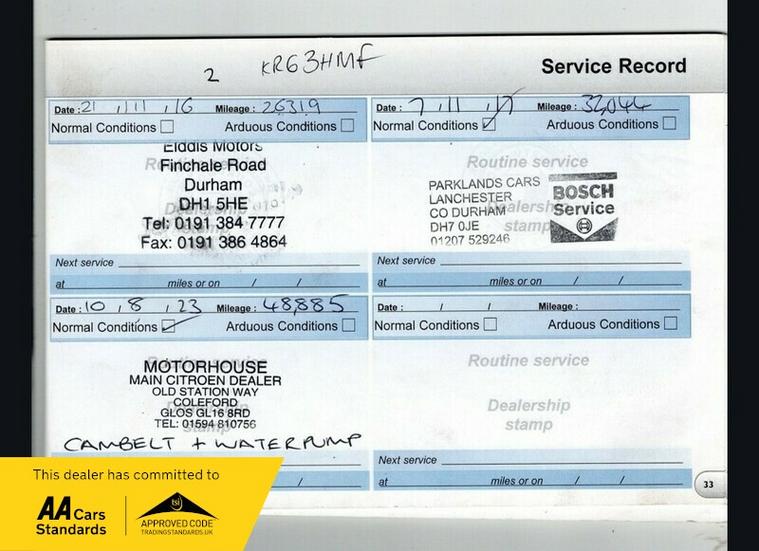 2 KR63HMF
Service Record
Date : 21 / 11 / 16 Mileage : 26319
Normal Conditions Arduous Conditions
Routine service
Eldis Motors
Finchale Road
Durham
DH1 5HE
Tel: 0191 384 7777
Fax: 0191 386 4864
Next service
at miles or on / /
Date : 7 / 11 / 17 Mileage : 32,044
Normal Conditions Arduous Conditions
Routine service
PARKLANDS CARS
LANCHESTER
CO DURHAM
DH7 0JE
01207 529246
Dealership
stamp
BOSCH
Service
Next service
at miles or on / /
Date : 10 / 8 / 23 Mileage : 48,885
Normal Conditions Arduous Conditions
Routine service
MOTORHOUSE
MAIN CITROEN DEALER
OLD STATION WAY
COLEFORD
GLOS GL16 8RD
TEL: 01594 810756
CAMBELT + WATERPUMP
/ /
Date : / / Mileage :
Normal Conditions Arduous Conditions
Routine service
Dealership
stamp
Next service
at miles or on / /
33
This dealer has committed to
AA Cars
Standards
tsi
APPROVED CODE
TRADINGSTANDARDS.UK